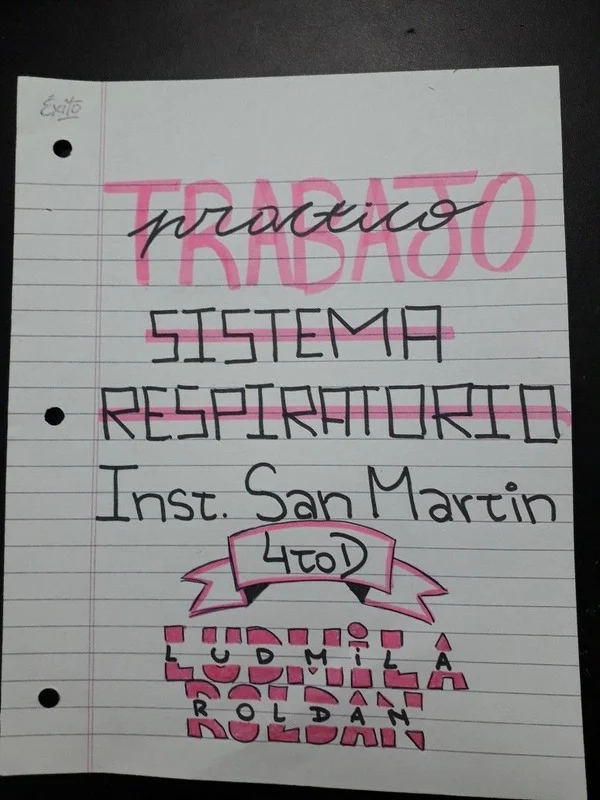 Éxito
TRABAJO
practico
SISTEMA
RESPIRATORIO
Inst. San Martin
4to D
LUDMILA
ROLDAN